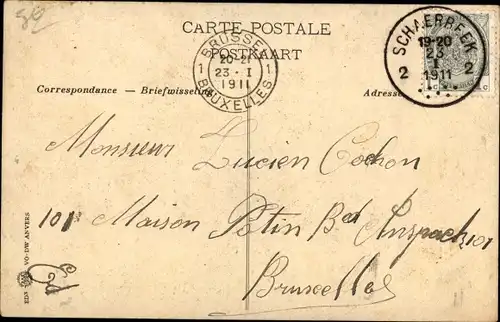 CARTE POSTALE
POSTKAART
BRUSSEL
1 20-21 1
23 · I
1911
BRUXELLES
SCHAERBEEK
19-20
2 23 2
I
1911
Correspondance — Briefwisseling
Adresse
Monsieur Lucien Cochon
101 Maison Potin Bd Anspach 101
Bruxelles
EDN VO-DW ANVERS